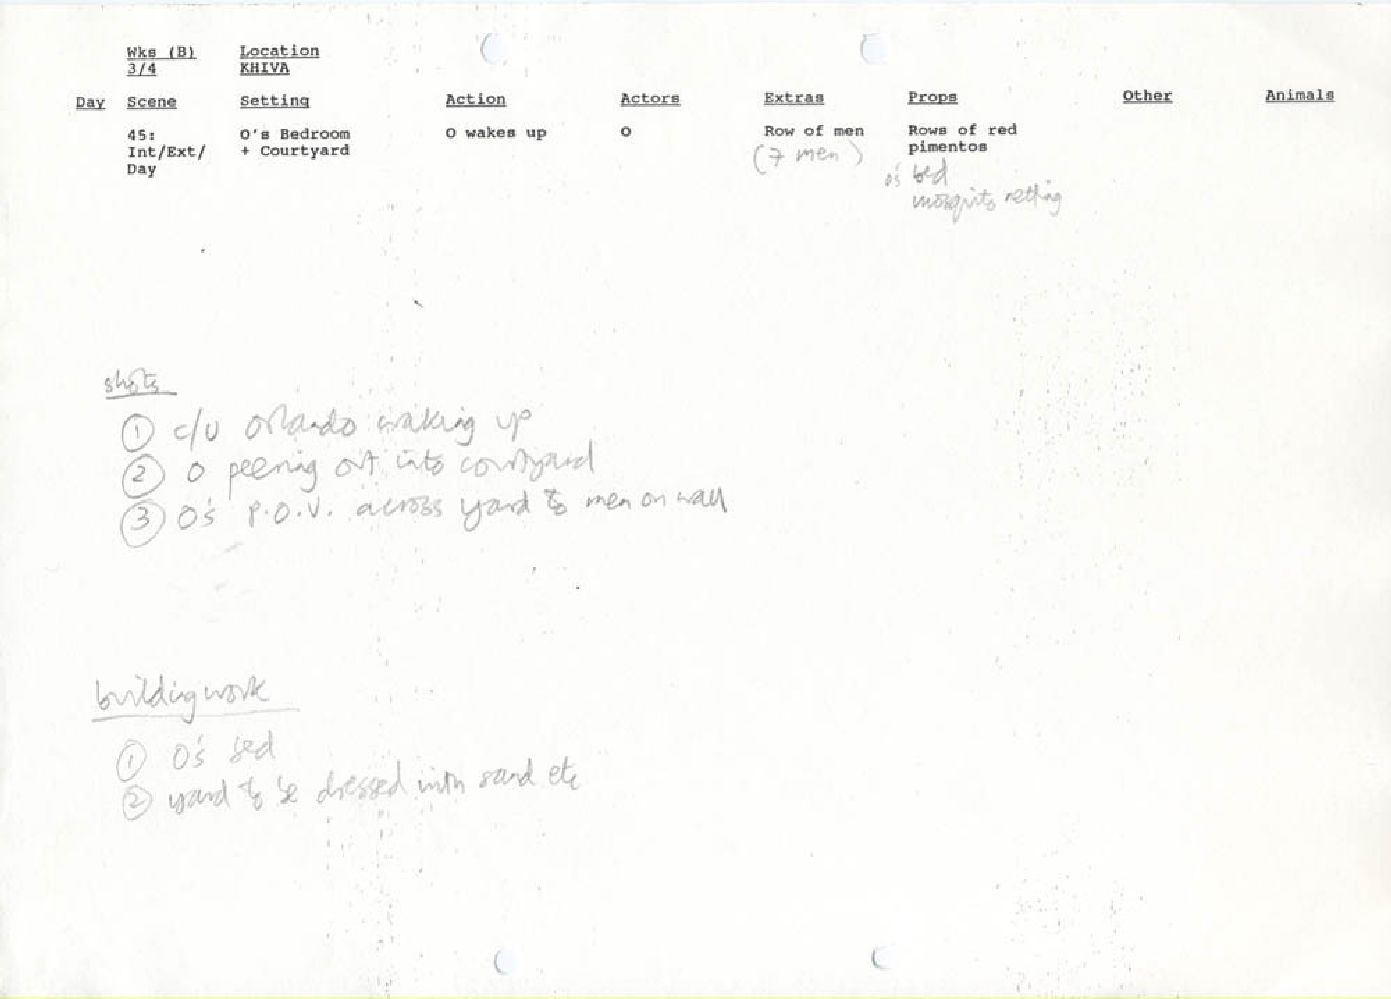 Wks (B) Location
3/4 KHIVA
Day Scene Setting Action Actors Extras Props Other Animals
45: O's Bedroom O wakes up O Row of men Rows of red
Int/Ext/ + Courtyard (7 men) pimentos
Day O's bed
mosquito netting
shots
① c/u Orlando waking up
② O peering out into courtyard
③ O's P.O.V. across yard to men on wall
building work
① O's bed
② yard to be dressed with sand etc